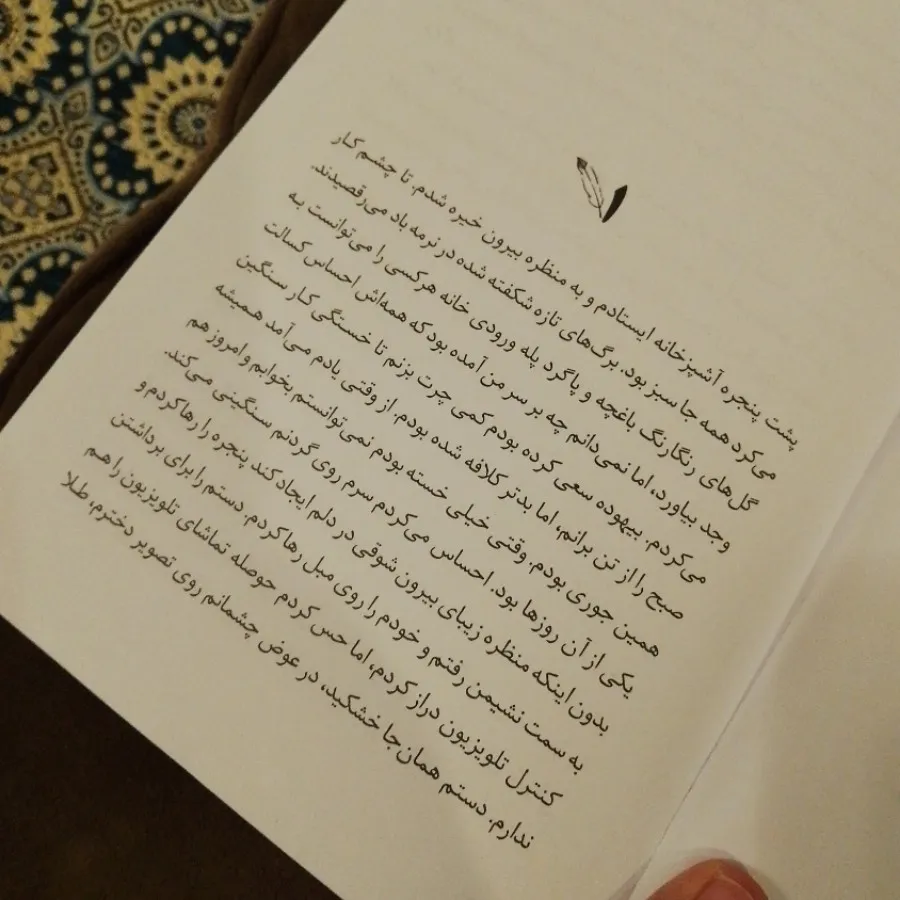 ۱
پشت پنجره آشپزخانه ایستادم و به منظره بیرون خیره شدم. تا چشم کار
می‌کرد همه جا سبز بود. برگ‌های تازه شکفته شده در نرمه باد می‌رقصیدند.
گل‌های رنگارنگ باغچه و پاگرد پله ورودی خانه هرکسی را می‌توانست به
وجد بیاورد، اما نمی‌دانم چه بر سر من آمده بود که همه‌اش احساس کسالت
می‌کردم. بیهوده سعی کرده بودم کمی چرت بزنم تا خستگی کار سنگین
صبح را از تن برانم، اما بدتر کلافه شده بودم. از وقتی یادم می‌آمد همیشه
همین جوری بودم. وقتی خیلی خسته بودم نمی‌توانستم بخوابم و امروز هم
یکی از آن روزها بود. احساس می‌کردم سرم روی گردنم سنگینی می‌کند.
بدون اینکه منظره زیبای بیرون شوقی در دلم ایجاد کند پنجره را رها کردم و
به سمت نشیمن رفتم و خودم را روی مبل رها کردم. دستم را برای برداشتن
کنترل تلویزیون دراز کردم، اما حس کردم حوصله تماشای تلویزیون را هم
ندارم. دستم همان‌جا خشکید، در عوض چشمانم روی تصویر دخترم، طلا